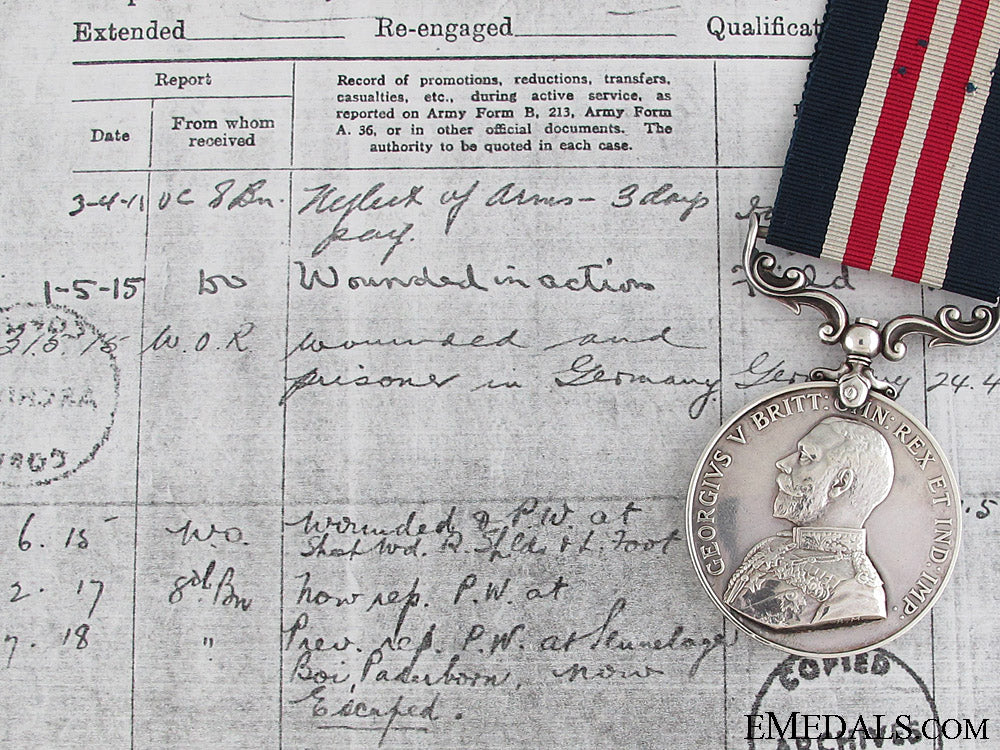 Extended Re-engaged Qualificat
Report
Date
From whom
received
Record of promotions, reductions, transfers,
casualties, etc., during active service, as
reported on Army Form B, 213, Army Form
A. 36, or in other official documents. The
authority to be quoted in each case.
3-4-11 OC 8 Bn. Neglect of Arms - 3 days
pay.
1-5-15 do Wounded in action Field
W.O.R. wounded and
prisoner in Germany 24.4
6. 15 W.O. Wounded & P.W. at
Shot Wd. R. Shldr & L. Foot
2. 17 8th Bn Now rep. P.W. at
7. 18 " Prev. rep. P.W. at Sennelager
Bei Paderborn, now
Escaped.
GEORGIVS V BRITT: OMN: REX ET IND: IMP:
COPIED
ARCHIVES
EMEDALS.COM